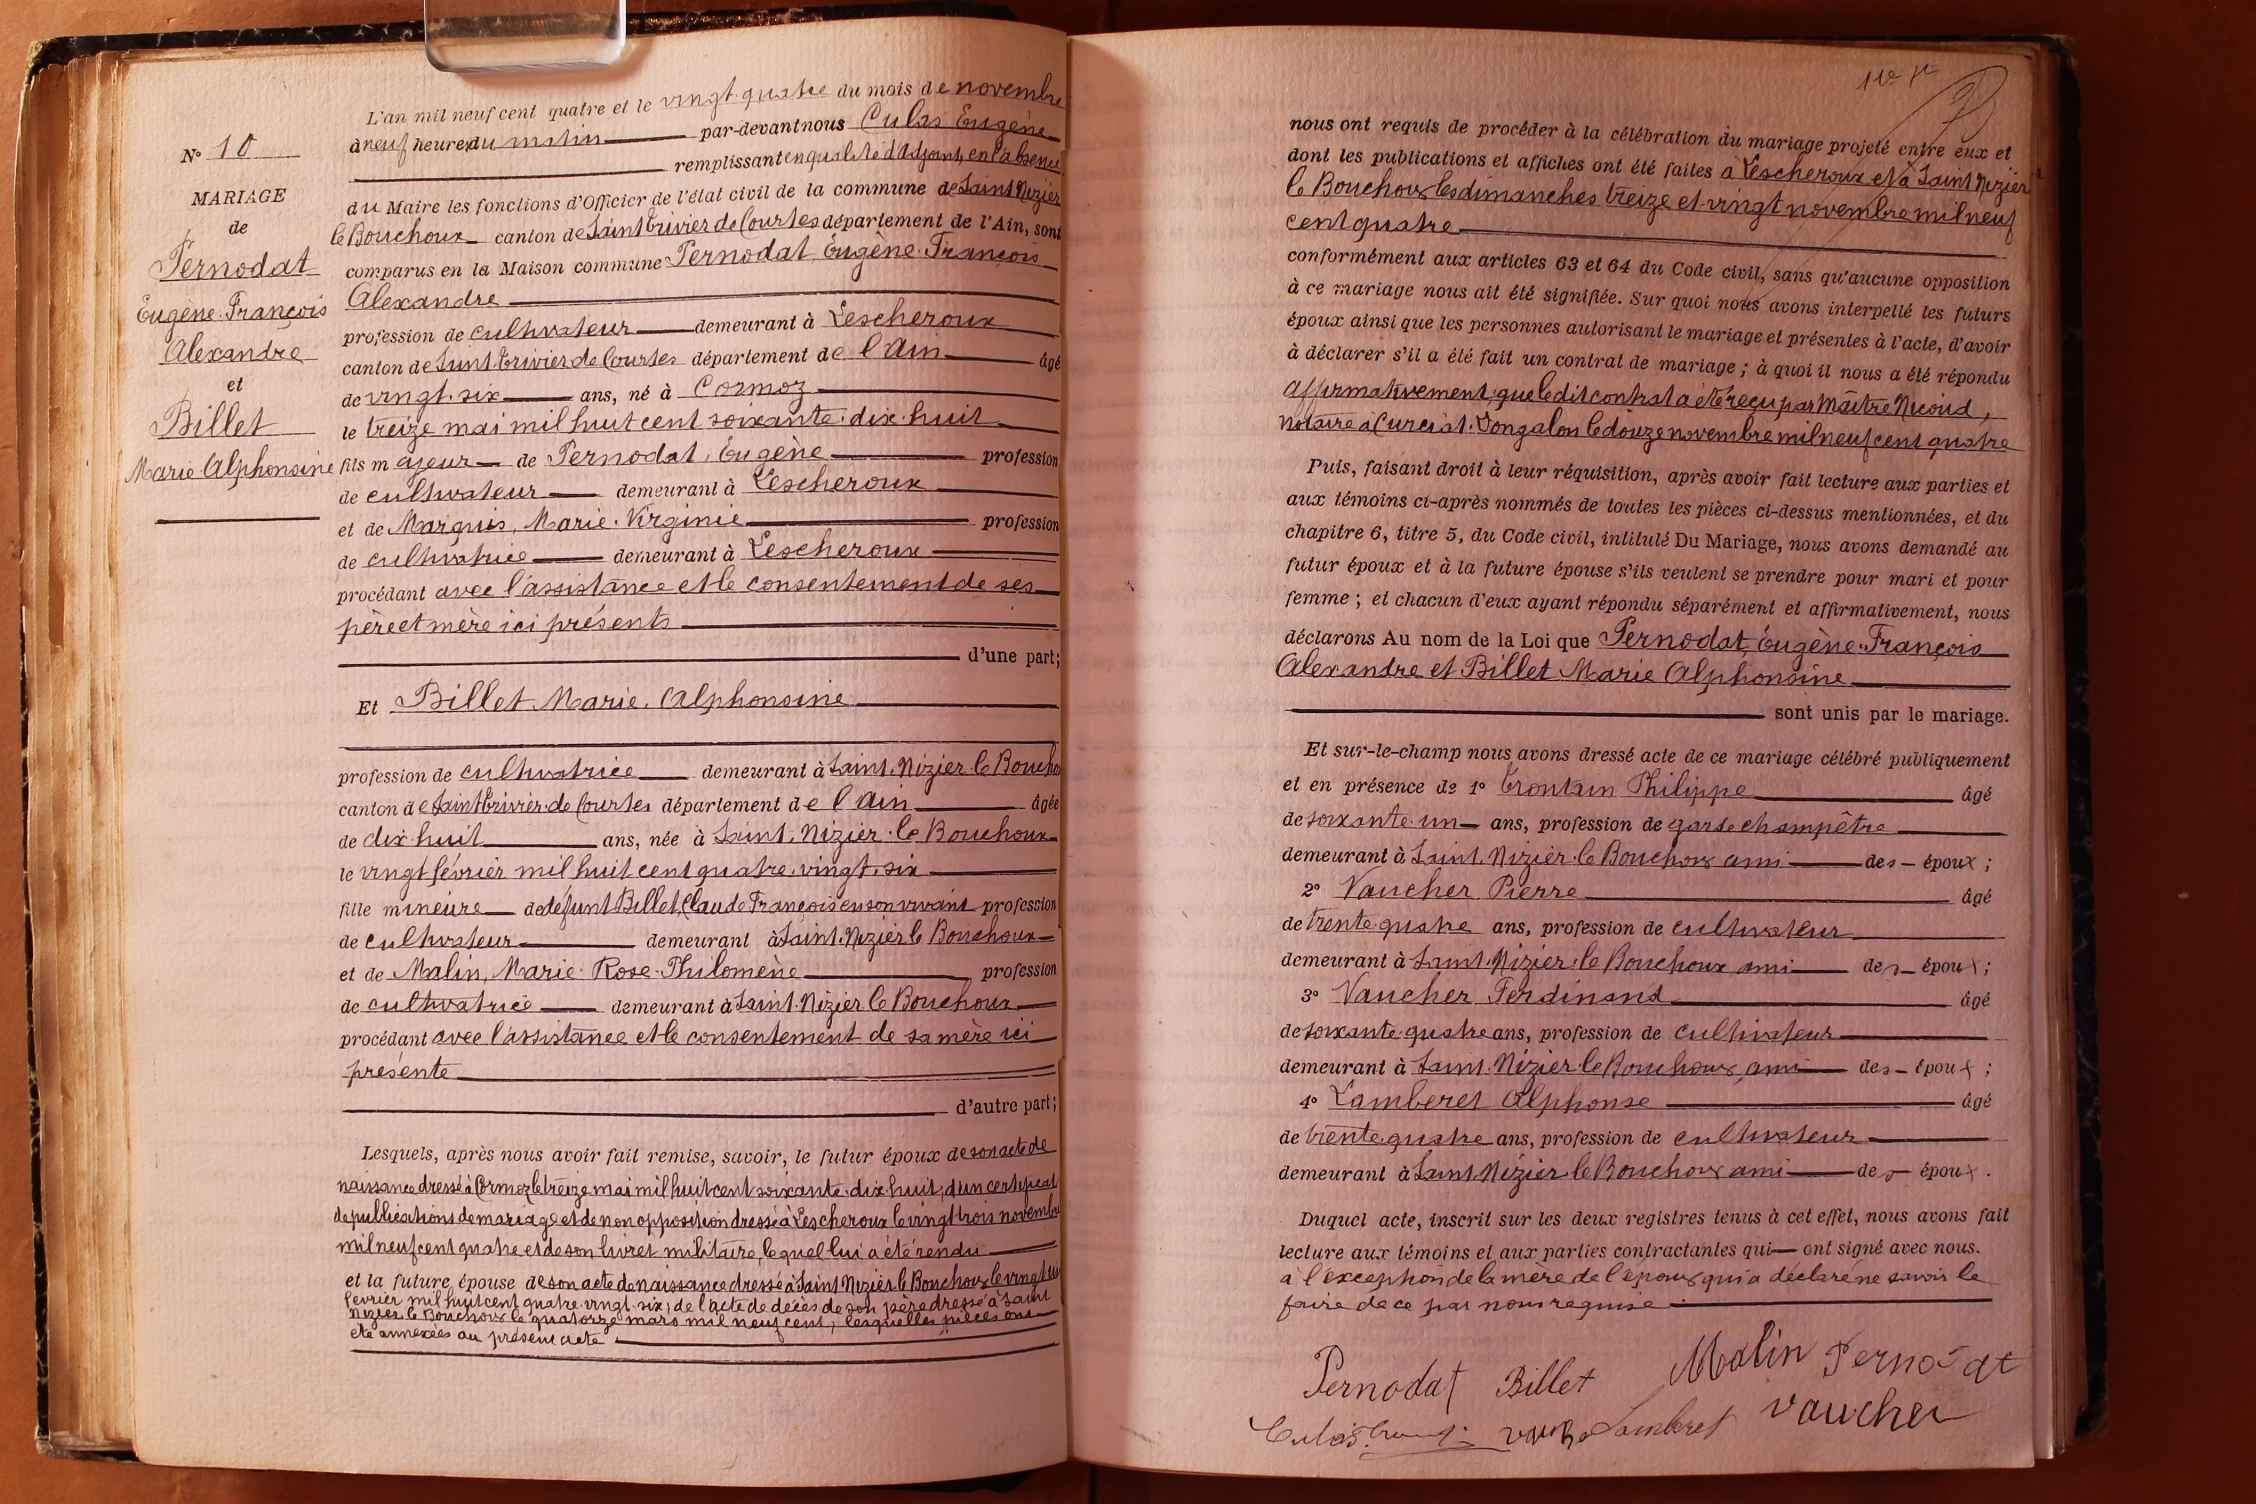 N° 10
MARIAGE
de
Pernodat
Eugène François
Alexandre
et
Billet
Marie Alphonsine
L'an mil neuf cent quatre et le vingt-quatre du mois de novembre
à neuf heures du matin par-devant nous Culas Eugène
remplissant en qualité d'Adjoint, en l'absence
du Maire les fonctions d'Officier de l'état civil de la commune de Saint Nizier
le Bouchoux canton de Saint Trivier de Courtes département de l'Ain, sont
comparus en la Maison commune Pernodat Eugène François
Alexandre
profession de cultivateur demeurant à Lescheroux
canton de Saint Trivier de Courtes département de l'Ain âgé
de vingt-six ans, né à Cormoz
le treize mai mil huit cent soixante-dix-huit
fils majeur de Pernodat, Eugène profession
de cultivateur demeurant à Lescheroux
et de Marguis, Marie Virginie profession
de cultivatrice demeurant à Lescheroux
procédant avec l'assistance et le consentement de ses
père et mère ici présents
d'une part;
Et Billet Marie Alphonsine
profession de cultivatrice demeurant à Saint Nizier le Boucho
canton de Saint Trivier de Courtes département de l'Ain âgée
de dix-huit ans, née à Saint Nizier le Bouchoux
le vingt février mil huit cent quatre-vingt-six
fille mineure de défunt Billet, Claude François en son vivant profession
de cultivateur demeurant à Saint Nizier le Bouchoux
et de Malin, Marie Rose Philomène profession
de cultivatrice demeurant à Saint Nizier le Bouchoux
procédant avec l'assistance et le consentement de sa mère ici
présente
d'autre part;
Lesquels, après nous avoir fait remise, savoir, le futur époux de son acte de
naissance dressé à Cormoz le treize mai mil huit cent soixante-dix-huit, d'un certificat
de publications de mariage et de non opposition dressé à Lescheroux le vingt trois novembre
mil neuf cent quatre et de son livret militaire, lequel lui a été rendu
et la future épouse de son acte de naissance dressé à Saint Nizier le Bouchoux le vingt un
février mil huit cent quatre-vingt-six; de l'acte de décès de son père dressé à Saint
Nizier le Bouchoux le quatorze mars mil neuf cent, lesquelles pièces ont
été annexées au présent acte
nous ont requis de procéder à la célébration du mariage projeté entre eux et
dont les publications et affiches ont été faites à Lescheroux et à Saint Nizier
le Bouchoux les dimanches treize et vingt novembre mil neuf
cent quatre
conformément aux articles 63 et 64 du Code civil, sans qu'aucune opposition
à ce mariage nous ait été signifiée. Sur quoi nous avons interpellé les futurs
époux ainsi que les personnes autorisant le mariage et présentes à l'acte, d'avoir
à déclarer s'il a été fait un contrat de mariage ; à quoi il nous a été répondu
affirmativement, que le dit contrat a été reçu par Maître Nicoud,
notaire à Curciat-Dongalon le douze novembre mil neuf cent quatre
Puis, faisant droit à leur réquisition, après avoir fait lecture aux parties et
aux témoins ci-après nommés de toutes les pièces ci-dessus mentionnées, et du
chapitre 6, titre 5, du Code civil, intitulé Du Mariage, nous avons demandé au
futur époux et à la future épouse s'ils veulent se prendre pour mari et pour
femme ; et chacun d'eux ayant répondu séparément et affirmativement, nous
déclarons Au nom de la Loi que Pernodat, Eugène François
Alexandre et Billet Marie Alphonsine
sont unis par le mariage.
Et sur-le-champ nous avons dressé acte de ce mariage célébré publiquement
et en présence de 1° Trontain Philippe âgé
de soixante-un ans, profession de garde champêtre
demeurant à Saint Nizier le Bouchoux ami des époux ;
2° Vaucher Pierre âgé
de trente-quatre ans, profession de cultivateur
demeurant à Saint Nizier le Bouchoux ami des époux ;
3° Vaucher Ferdinand âgé
de soixante-quatre ans, profession de cultivateur
demeurant à Saint Nizier le Bouchoux ami des époux ;
4° Lamberet Alphonse âgé
de trente-quatre ans, profession de cultivateur
demeurant à Saint Nizier le Bouchoux ami des époux .
Duquel acte, inscrit sur les deux registres tenus à cet effet, nous avons fait
lecture aux témoins et aux parties contractantes qui ont signé avec nous.
à l'exception de la mère de l'époux qui a déclaré ne savoir le
faire de ce par nous requise
Pernodat Billet Malin Pernodat
Culas Lamberet Vaucher